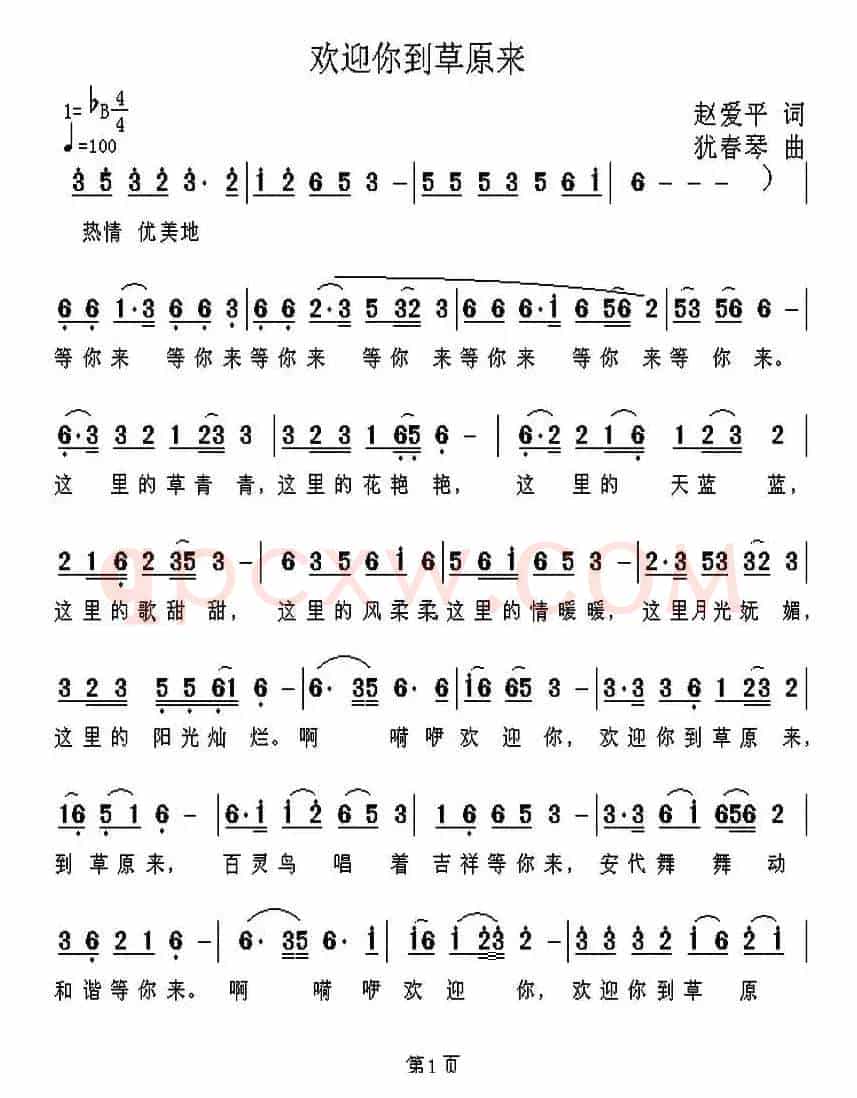 欢迎你到草原来
1=♭B 4/4
赵爱平 词
♩=100
犹春琴 曲
3 5 3 2 3· 2 | 1 2 6 5 3 – | 5 5 5 3 5 6 1 | 6 – – – ) |
热情 优美地
6 6 1·3 6 6 3 | 6 6 2·3 5 32 3 | 6 6 6·1 6 56 2 | 53 56 6 – |
等你来 等你来等你来 等你 来等你来 等你 来等 你 来。
6·3 3 2 1 23 3 | 3 2 3 1 65 6 – | 6·2 2 1 6 1 2 3 2 |
这 里的草青 青,这里的花艳 艳, 这 里的 天蓝 蓝,
2 1 6 2 35 – | 6 3 5 6 1 1 | 5 6 1 6 5 3 – | 2·3 53 32 3 |
这里的歌甜 甜, 这里的风柔柔,这里的情暖暖,这里月光妩 媚,
qpcxw.com
3 2 3 5 5 61 6 – | 6· 35 6· 6 | 16 65 3 | 3·3 3 6 1 23 2 |
这里的 阳光灿 烂。啊 嗬咿欢 迎 你, 欢迎你到草原 来,
16 5 1 6 – | 6·1 1 2 6 5 3 | 1 6 6 5 3 – | 3·3 6 1 656 2 |
到 草原来, 百灵鸟 唱 着 吉祥等你来,安代舞 舞动
3 6 2 1 6 – | 6· 35 6· 1 | 16 1 23 2 – | 3 3 3 2 1 6 2 1 |
和谐等你来。 啊 嗬 咿欢 迎 你, 欢迎你到草 原
第1页